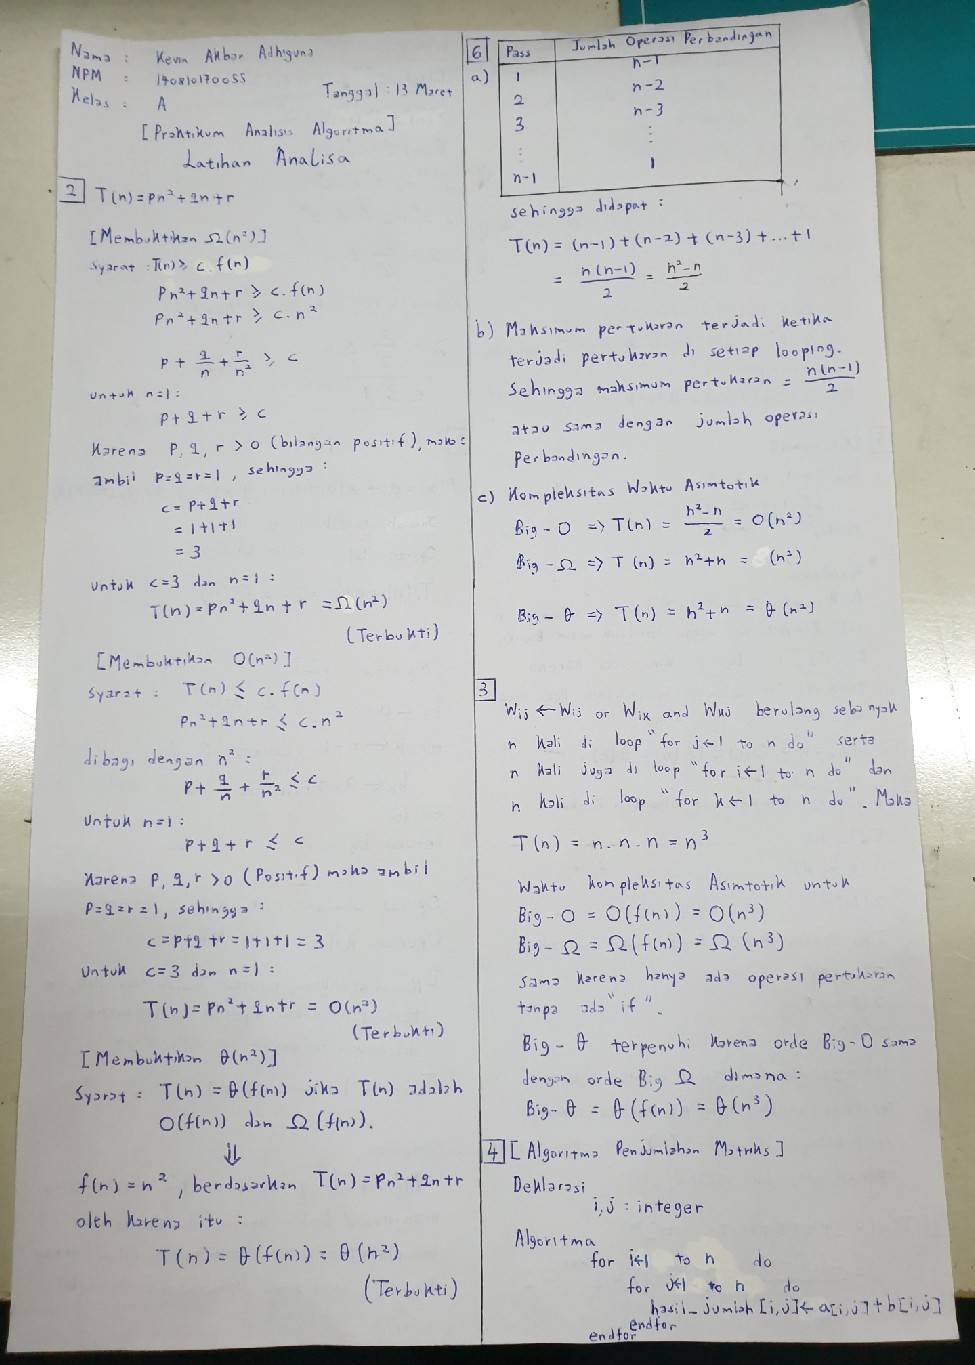 Nama : Kevin Akbar Adhiguna
NPM : 140810170055
Kelas : A
Tanggal : 13 Maret
[Praktikum Analisis Algoritma]
Latihan Analisa
2 T(n) = pn² + qn + r
[Membuktikan Ω(n²)]
Syarat : T(n) ≥ c. f(n)
pn² + qn + r ≥ c. f(n)
pn² + qn + r ≥ c. n²
p + q/n + r/n² ≥ c
untuk n=1 :
p + q + r ≥ c
Karena p, q, r > 0 (bilangan positif), maka :
ambil p=q=r=1, sehingga :
c = p+q+r
= 1+1+1
= 3
untuk c=3 dan n=1 :
T(n) = pn² + qn + r = Ω(n²)
(Terbukti)
[Membuktikan O(n²)]
Syarat : T(n) ≤ c. f(n)
pn² + qn + r ≤ c. n²
dibagi dengan n² :
p + q/n + r/n² ≤ c
Untuk n=1 :
p + q + r ≤ c
Karena p, q, r > 0 (Positif) maka ambil
p=q=r=1, sehingga :
c = p+q+r = 1+1+1 = 3
Untuk c=3 dan n=1 :
T(n) = pn² + qn + r = O(n²)
(Terbukti)
[Membuktikan θ(n²)]
Syarat : T(n) = θ(f(n)) jika T(n) adalah
O(f(n)) dan Ω(f(n)).
⇓
f(n) = n², berdasarkan T(n) = pn² + qn + r
oleh karena itu :
T(n) = θ(f(n)) = θ(n²)
(Terbukti)
6
a)
Pass Jumlah Operasi Perbandingan
1 n-1
2 n-2
3 n-3
⋮ ⋮
n-1 1
sehingga didapat :
T(n) = (n-1) + (n-2) + (n-3) + ... + 1
= n(n-1)/2 = n²-n/2
b) Maksimum pertukaran terjadi ketika
terjadi pertukaran di setiap looping.
Sehingga maksimum pertukaran = n(n-1)/2
atau sama dengan jumlah operasi
perbandingan.
c) Kompleksitas Waktu Asimtotik
Big-O => T(n) = n²-n/2 = O(n²)
Big-Ω => T(n) = n²+n = (n²)
Big-θ => T(n) = n²+n = θ(n²)
3
Wij ← Wij or Wik and Wkj berulang sebanyak
n kali di loop "for j←1 to n do" serta
n kali juga di loop "for i←1 to n do" dan
n kali di loop "for k←1 to n do". Maka
T(n) = n. n. n = n³
Waktu kompleksitas Asimtotik untuk
Big-O = O(f(n)) = O(n³)
Big-Ω = Ω(f(n)) = Ω(n³)
sama karena hanya ada operasi pertukaran
tanpa ada "if".
Big-θ terpenuhi karena orde Big-O sama
dengan orde Big Ω dimana :
Big-θ = θ(f(n)) = θ(n³)
4 [Algoritma Penjumlahan Matriks]
Deklarasi
i,j : integer
Algoritma
for i←1 to n do
for j←1 to n do
hasil_jumlah [i,j] ← a[i,j] + b[i,j]
endfor
endfor